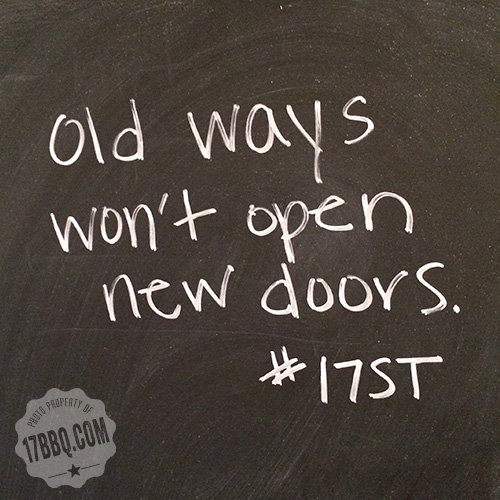 Old ways
won't open
new doors.
#17ST
PHOTO PROPERTY OF
17BBQ.COM